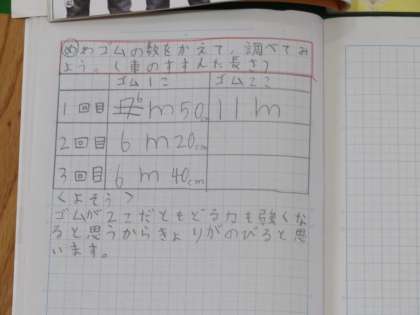 めわゴムの数をかえて、調べてみ
よう。(車のすすんだ長さ)
ゴム1こ ゴム2こ
1回目 6m50cm 11m
2回目 6m20cm
3回目 6m40cm
<よそう>
ゴムが2こだともどる力も強くな
ると思うからきょりがのびると思
います。